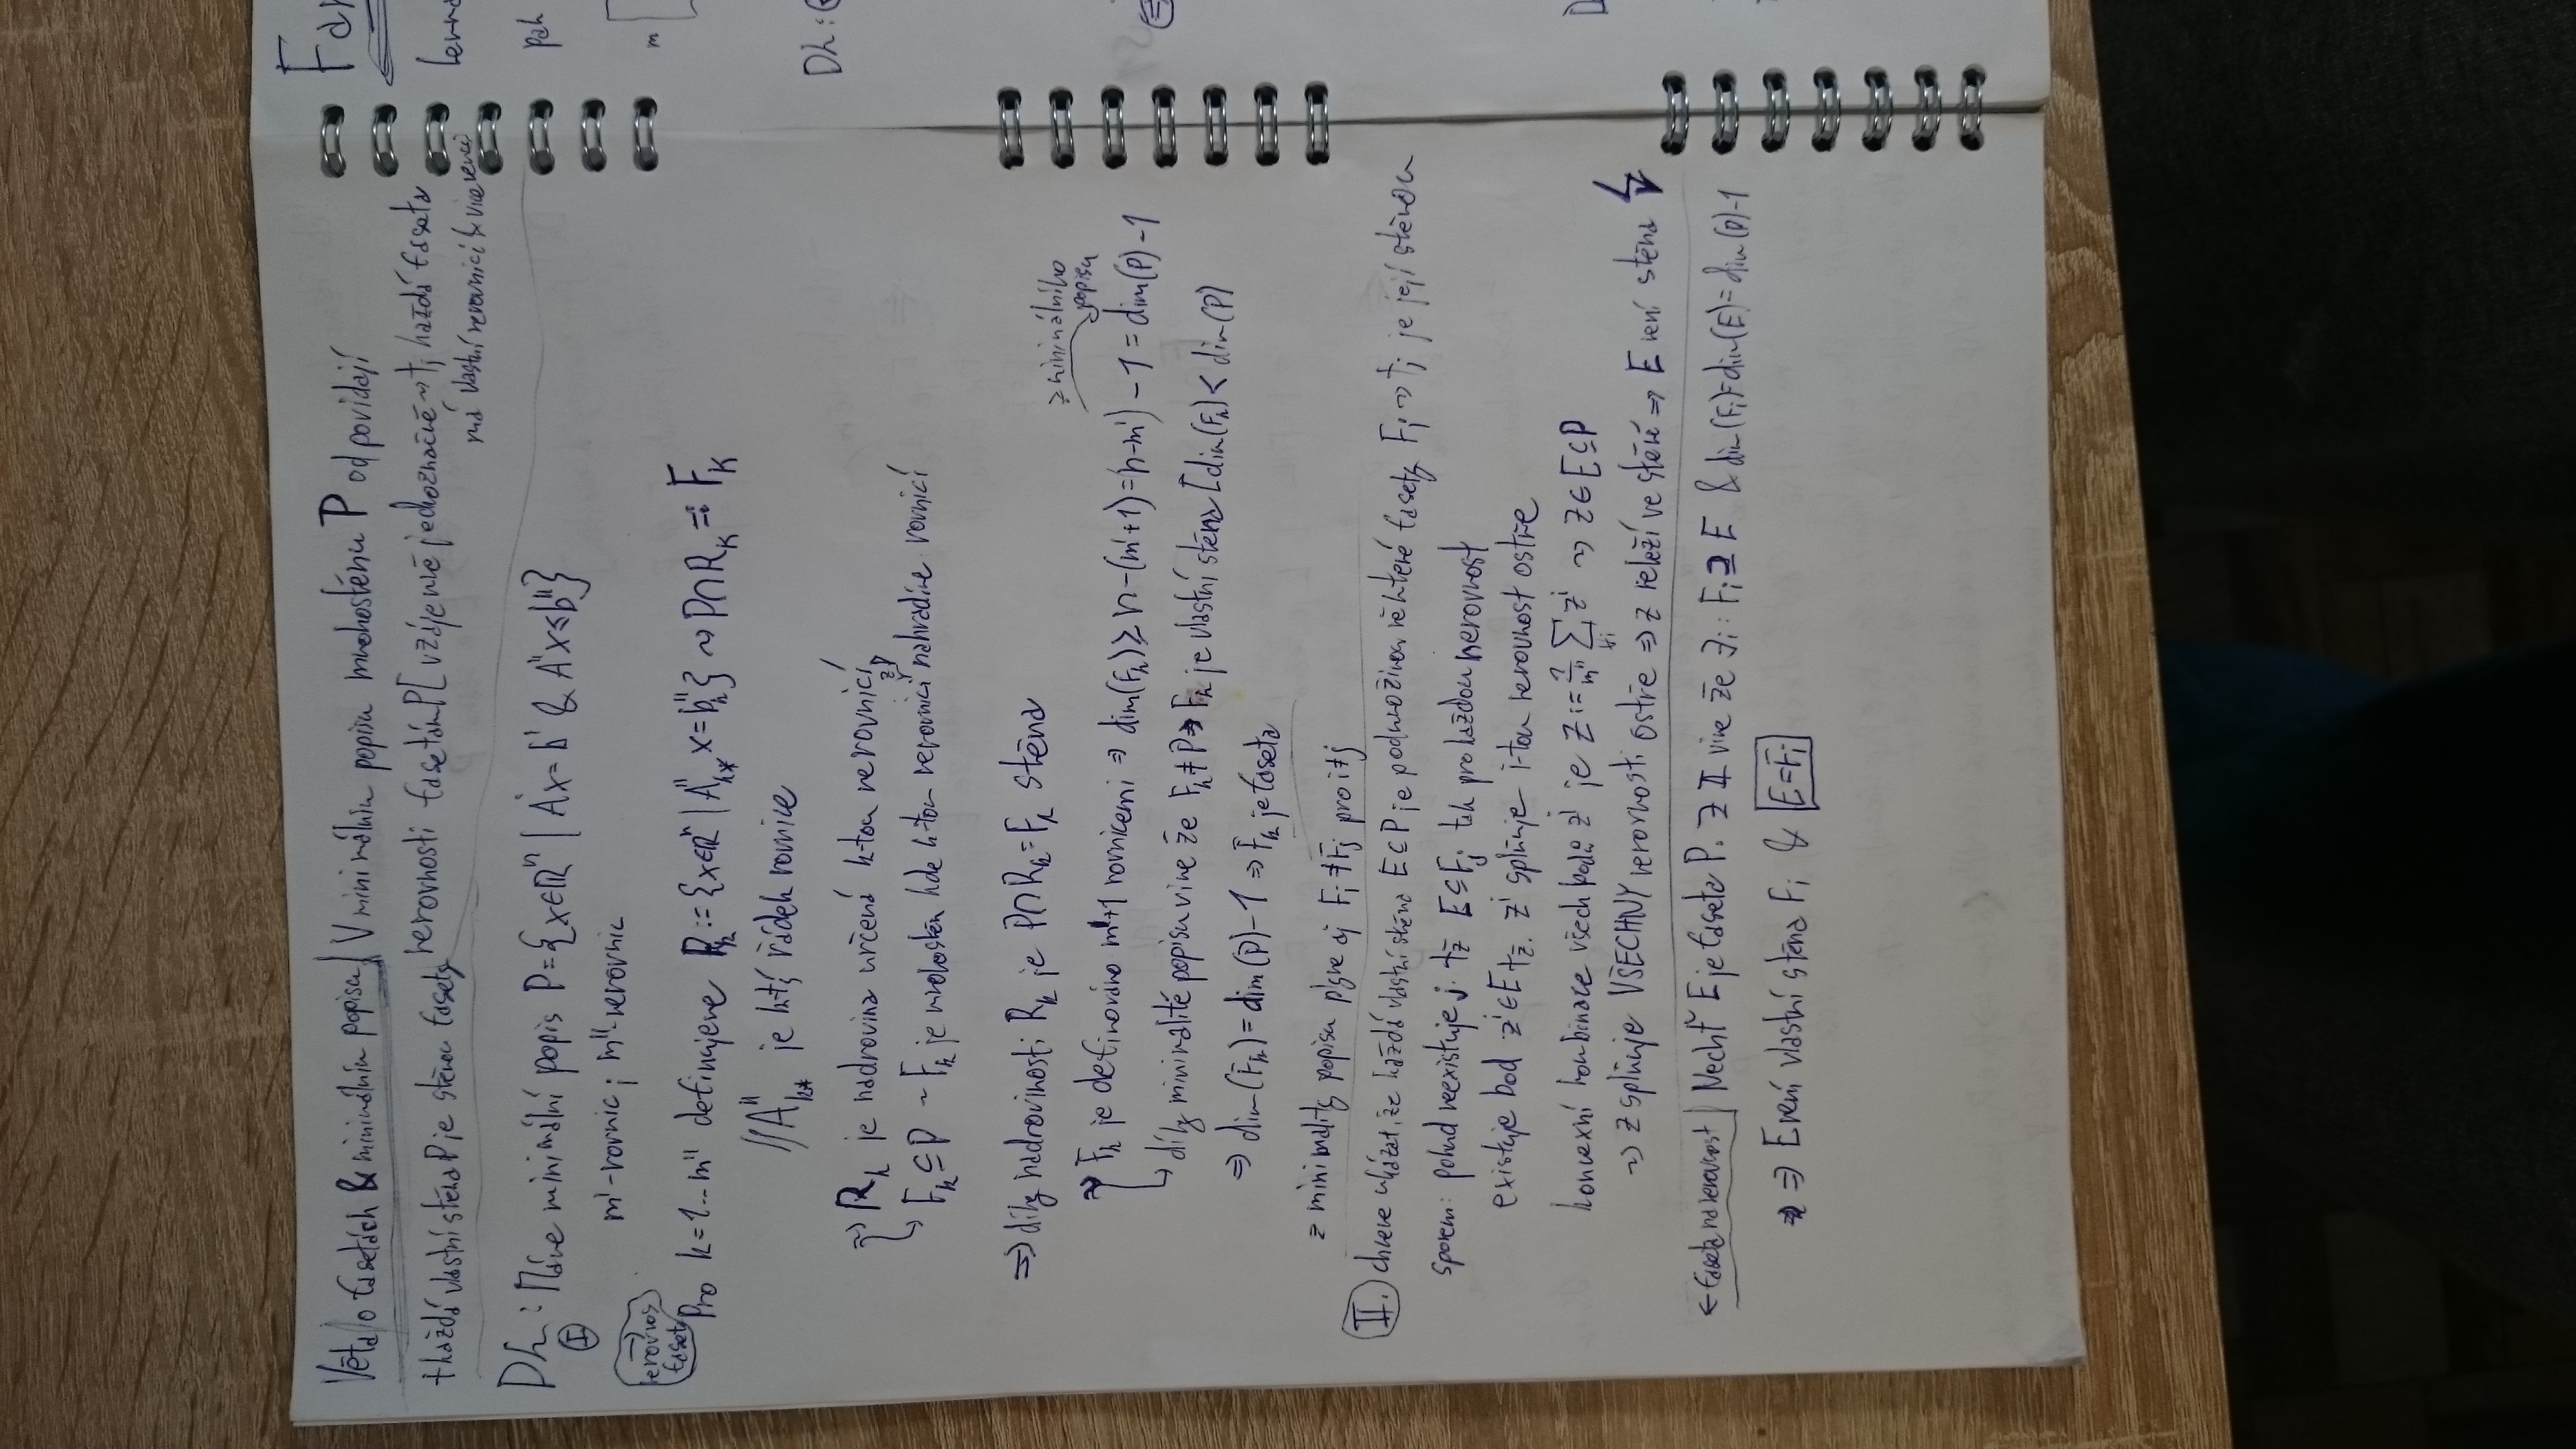 Věta/o fasetách & minimálním popisu/ V minimálním popisu mnohostěnu P odpovídají
nerovnosti fasetám P [vzájemně jednoznačně ~ tj každá faseta
má vlastní nerovnicí k vierení
+ každá vlastní stěna P je stěnou fasety
Dk: Máme minimální popis P={x∈ℝⁿ | A'x=b' & A''x≤b''}
(I)
m'-rovnic ; m''-nerovnic
→
nerovnos
fasety
Pro k=1...m'' definujeme R_k := {x∈ℝⁿ | A''_k* x=b''_k} ~ P∩R_k =: F_k
//A''_k* je k-tý řádek rovnice
~) R_k je nadrovina určená k-tou nerovnicí
↳ F_k⊆P ~ F_k je mnohostěn kde k-tou nerovnici z P nahradíme rovnicí
⇒) díky nadrovinosti R_k je P∩R_k=F_k stěna
z minimálního
popisu
F_k je definováno m'+1 rovnicemi ⇒ dim(F_k) ≥ n-(m'+1)=(n-m')-1=dim(P)-1
↳ díky minimalitě popisu víme že F_k≠P ⇒ F_k je vlastní stěna [dim(F_k)<dim(P)
⇒ dim(F_k)=dim(P)-1 ⇒ F_k je faseta
z minimality popisu plyne aj F_i≠F_j pro i≠j
(II.) chceme ukázat, že každá vlastní stěna E⊆P je podmnožinou některé fasety F_i ~) tj je její stěnou
sporem: pokud neexistuje j. tž E⊆F_j tak pro každou nerovnost
existuje bod zⁱ∈E tž. zⁱ splňuje i-tou nerovnost ostře
konvexní kombinace všech bodů zⁱ je z:=1/m'' ∑_∀i zⁱ ~) z∈E⊆P
~) z splňuje VŠECHNY nerovnosti ostře ⇒ z neleží ve stěně ⇒ E není stěna ↯
← faseta na nerovnost / Nechť E je faseta P. Z II víme že ∃i: F_i⊇E & dim(F_i)=dim(E)=dim(P)-1
⇒ E není vlastní stěna F_i & E=F_i
Dk:
m